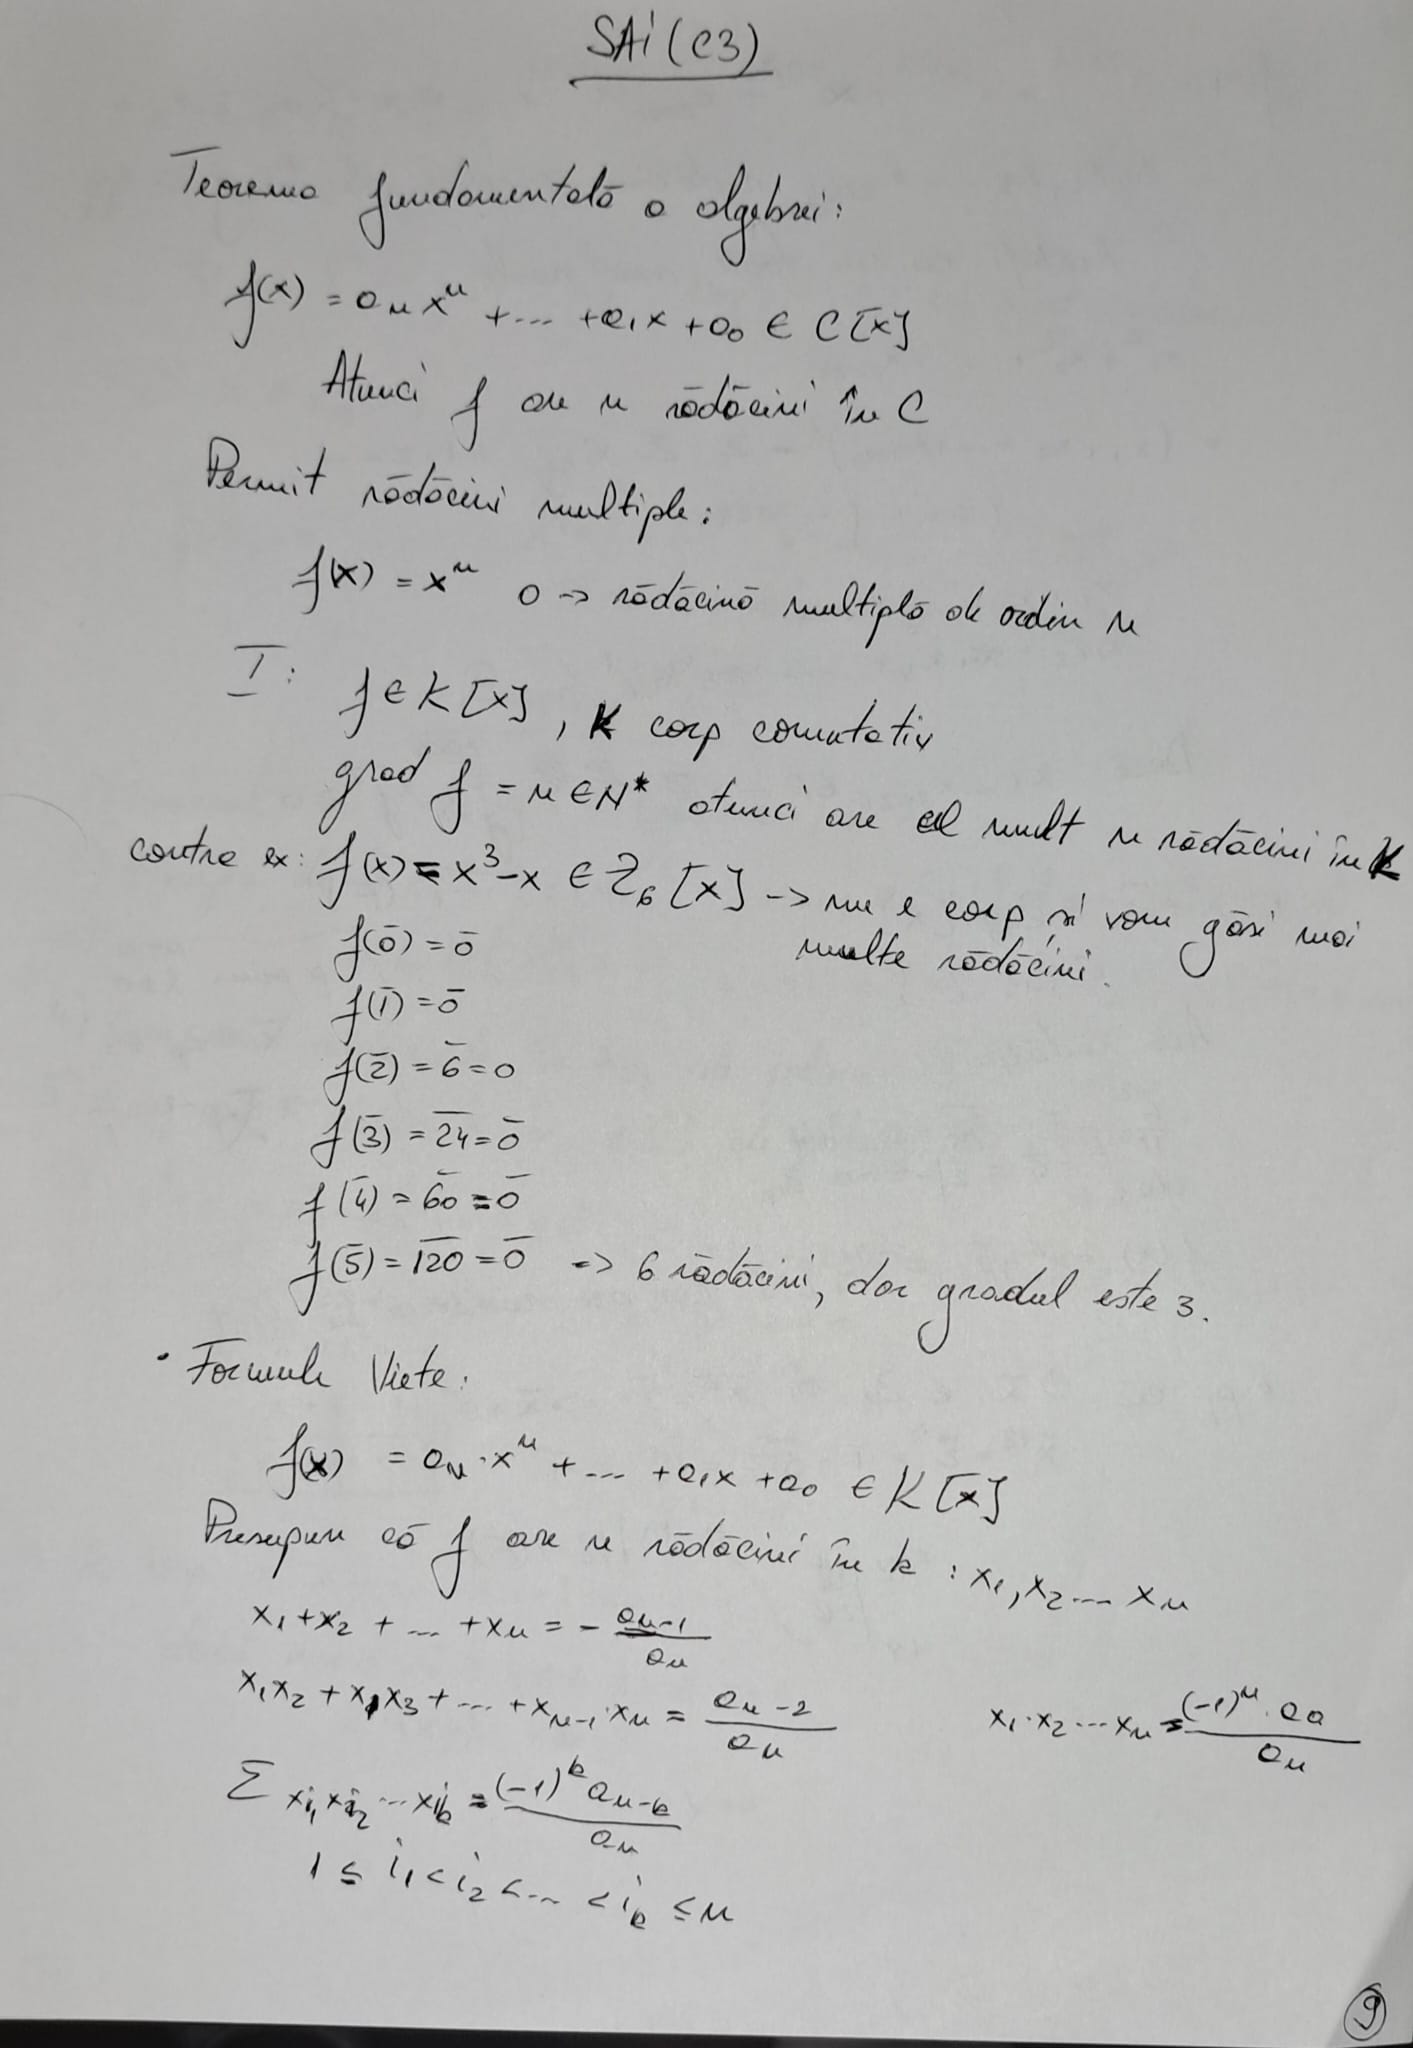 SAI (C3)
Teorema fundamentală a algebrei:
f(x) = aₙxⁿ + ... + a₁x + a₀ ∈ C[x]
Atunci f are n rădăcini în C
Permit rădăcini multiple:
f(x) = xⁿ 0 -> rădăcină multiplă de ordin n
T: f ∈ K[x], K corp comutativ
grad f = n ∈ N* atunci are cel mult n rădăcini în K
contra ex: f(x) = x³-x ∈ Z₆[x] -> nu e corp și vom găsi mai
multe rădăcini.
f(0̄) = 0̄
f(1̄) = 0̄
f(2̄) = 6̄ = 0
f(3̄) = 2̄4̄ = 0̄
f(4̄) = 6̄0̄ = 0̄
f(5̄) = 1̄2̄0̄ = 0̄ => 6 rădăcini, dar gradul este 3.
• Formule Viete:
f(x) = aₙ·xⁿ + ... + a₁x + a₀ ∈ K[x]
Presupun că f are n rădăcini în k : x₁, x₂ ... xₙ
x₁ + x₂ + ... + xₙ = - aₙ₋₁/aₙ
x₁x₂ + x₁x₃ + ... + xₙ₋₁·xₙ = aₙ₋₂/aₙ x₁·x₂ ... xₙ = (-1)ⁿ·a₀/aₙ
Σ xᵢ₁xᵢ₂ ... xᵢₖ = (-1)ᵏaₙ₋ₖ/aₙ
1 ≤ i₁ < i₂ < ... < iₖ ≤ n
9